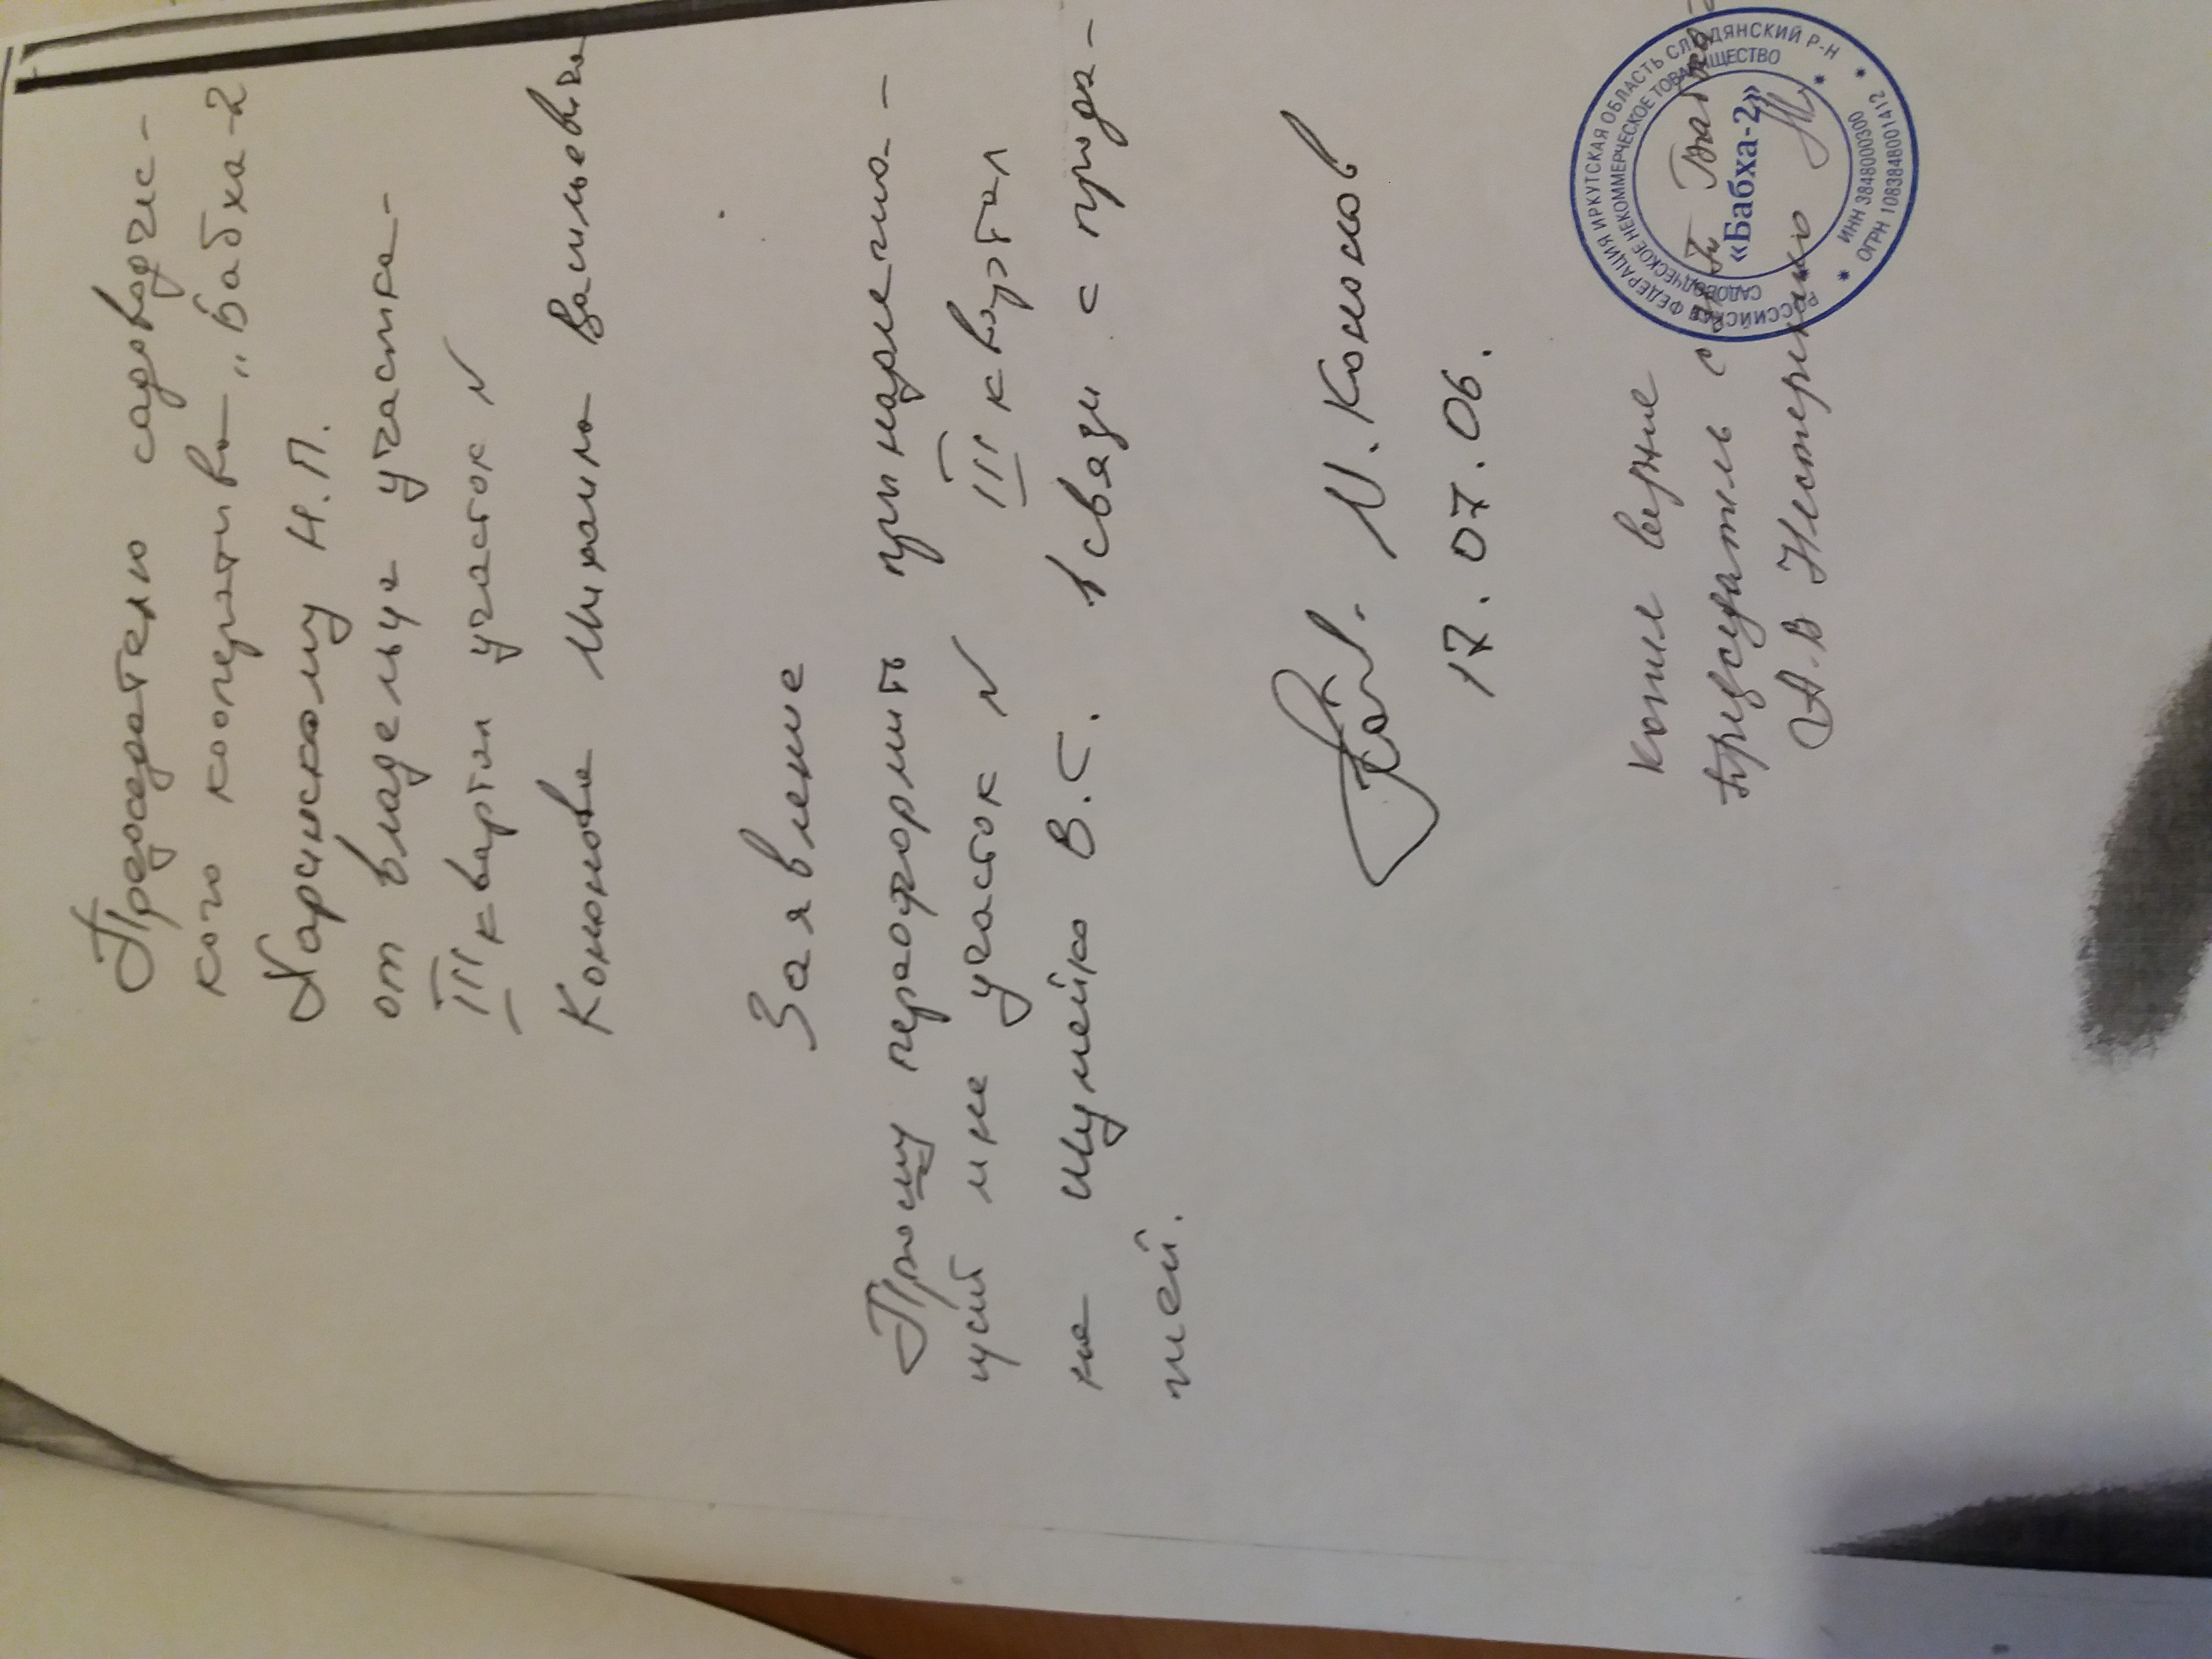 Председателю садоводчес-
кого кооператива „Бабха-2
Ларинскому Н.П.
от владельца участка-
III квартал участок N
Кононова Михаила Васильевича
Заявление
Прошу переоформить принадлежа-
щий мне участок N III квартал
на Шумейко В.С. в связи с прода-
жей.
М. Кононов
17.07.06.
Копия верна
Председатель с Бабха-2
А.В Нестеренко
РОССИЙСКАЯ ФЕДЕРАЦИЯ ИРКУТСКАЯ ОБЛАСТЬ СЛЮДЯНСКИЙ Р-Н
САДОВОДЧЕСКОЕ НЕКОММЕРЧЕСКОЕ ТОВАРИЩЕСТВО
«Бабха-2»
ИНН 3848000300
ОГРН 1083848001412